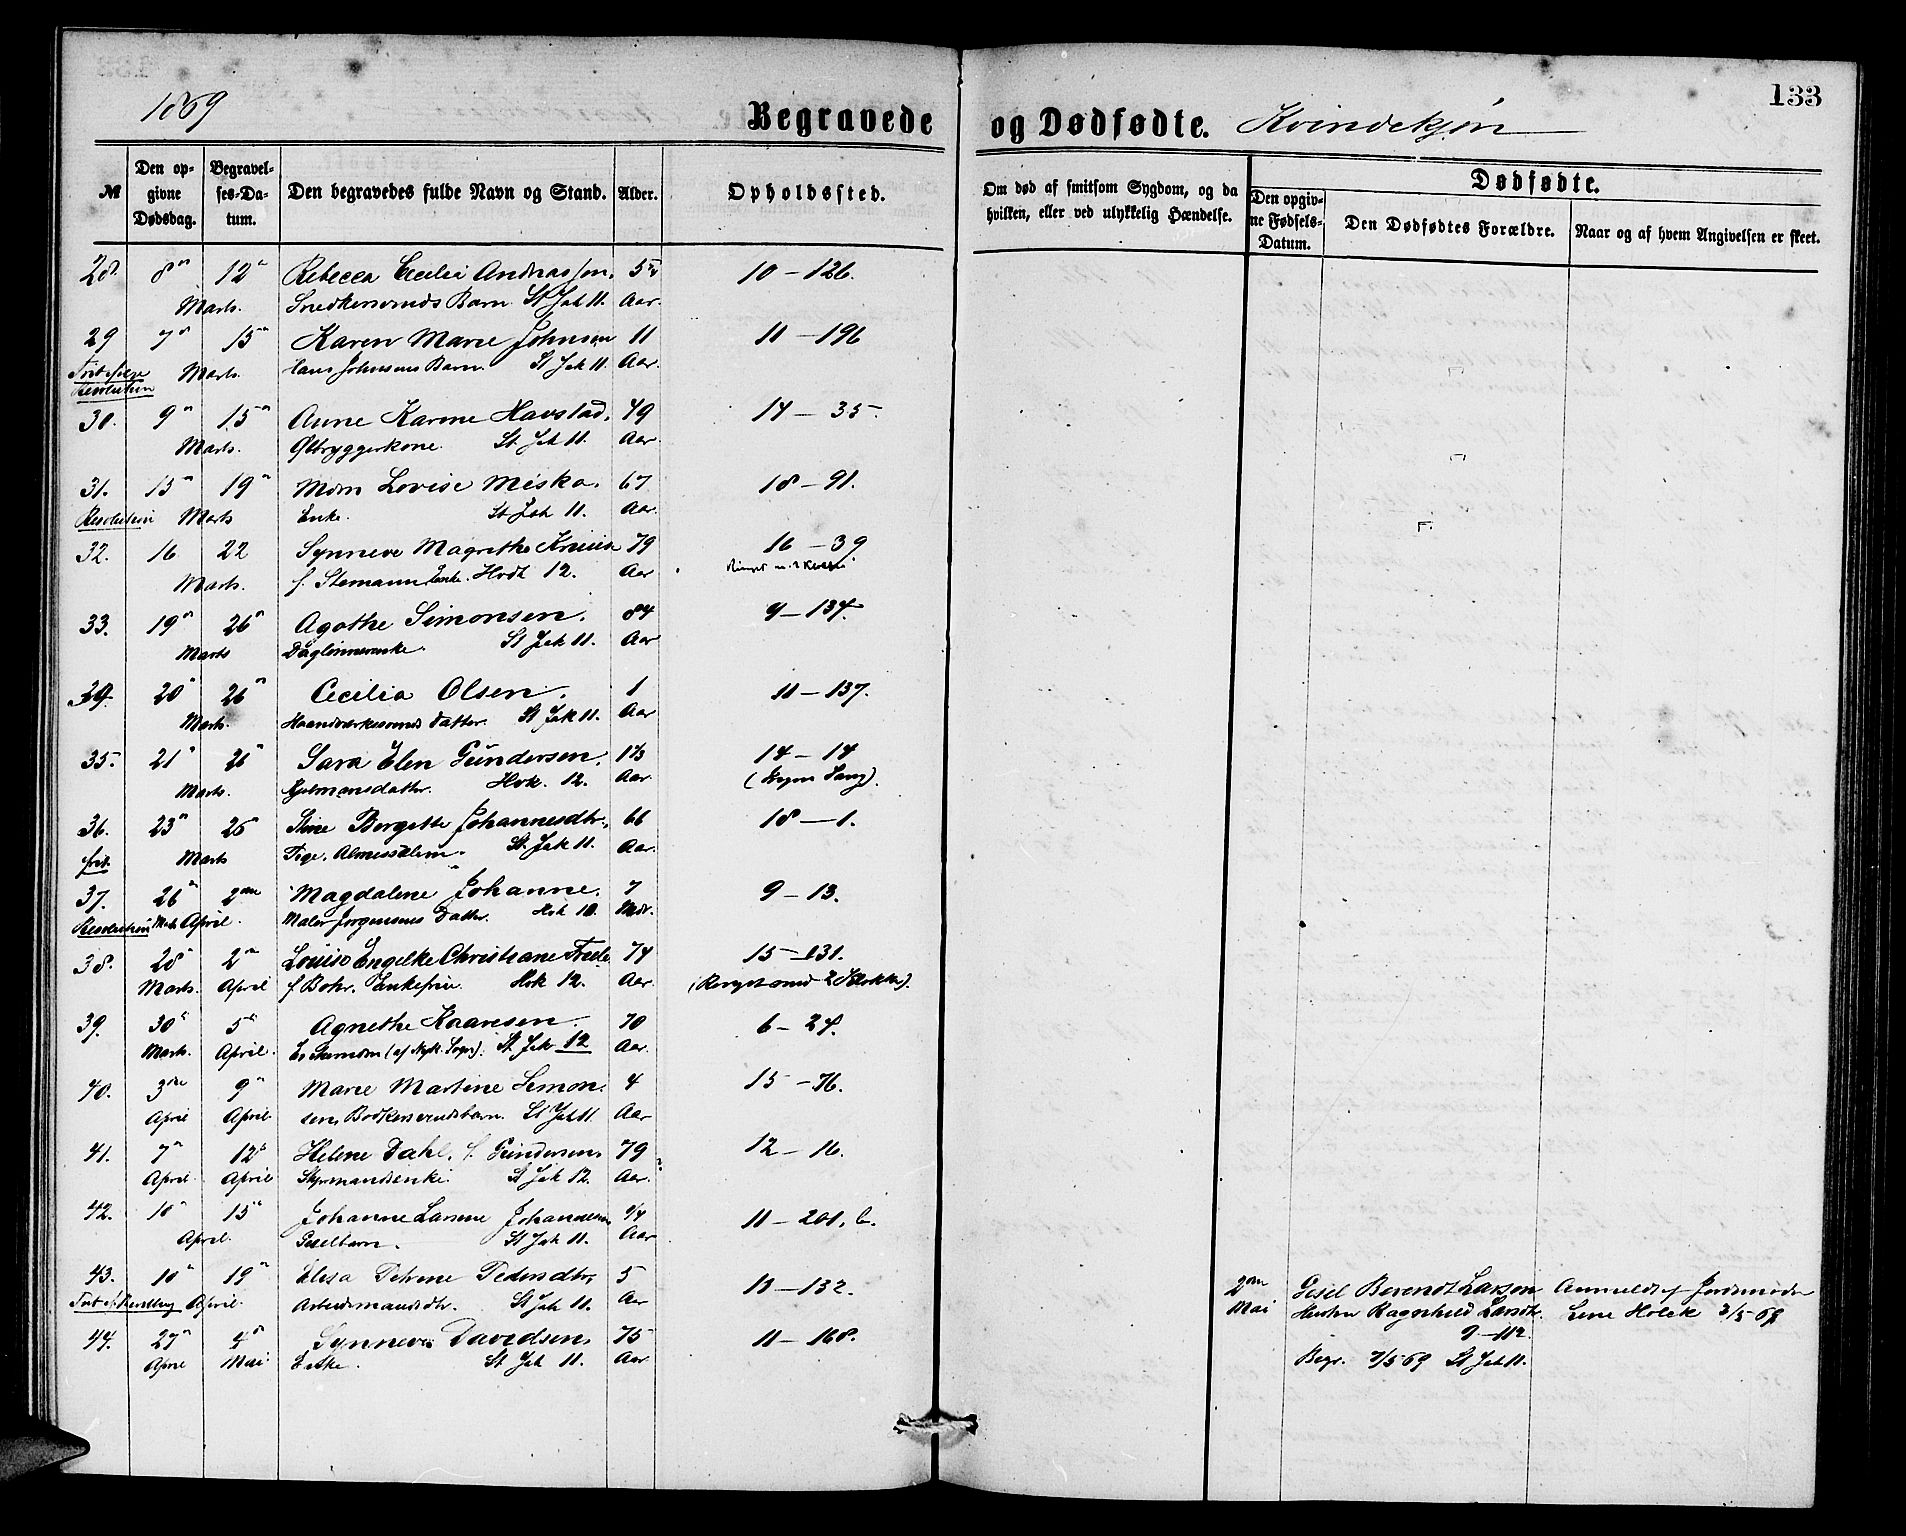 133
1869 Begravede og Dødfødte. Kvindekjøn
№ Den opgivne Dødsdag. Begravelses-Datum. Den begravedes fulde Navn og Stand. Alder. Opholdssted. Om død af smitsom Sygdom, og da hvilken, eller ved ulykkelig Hændelse. Dødfødte.
Den opgivne Fødsels-Datum. Den Dødfødtes Forældre. Naar og af hvem Angivelsen er skeet.
28. 8 12 Rebecca Cecilie 5 10 – 126.
Marts. Snedkersvends Barn. St Jak 11. Aar.
29 7 15 Karen Marie Johnsen 11 11 – 196
Resolution Marts. Johnsens Barn. St Jak 11. Aar.
30. 9 15 Anne Karine Havstad. 49 14 – 35.
Marts. Ølbryggerkone. St Jak 11. Aar.
31. 15 19 Mdm Lovise Miska. 67 18 – 91.
Resolution Marts Enke. St Jak 11. Aar.
32. 16 22 Synneve Magrethe 79 16 – 39
Marts. f. Stemann Enke. 12. Aar
33. 19 26 Agathe Simonsen. 84 9 – 134.
Marts Daglønnerenke. St Jak 11. Aar
34. 20 26 Cecilia Olsen. 1 11 – 137.
Marts. Datter. St Jak 11. Aar
35. 21 26 Sara Elen Gundersen. 14 – 14
Marts. Hvk. 12. Aar.
36. 23 26 Stine Bergette Johannesdtr. 66 18 – 1.
frit. Marts Pige. St. Jak 11. Aar.
37. 26 2den Magdalene Johanne. 7 9 – 13.
Resolution Marts April. Maler Jørgensens Datter. Hvk 10. Mdr.
38. 28 2 Louise Engelke Christiane 74 15 – 131.
Marts. April f Bohr. Enkefrue. Hvk 12. Aar. 2 Klokker).
39. 30 5 Agnethe 70 6 – 24.
Marts. April. (af Nyk. Sogn). St. Jak 12 Aar.
40. 3die 9 Marie Martine Simon 4 15 – 76.
April April. sen, Bødkersvendsbarn. St Jak 11. Aar
41. 7 12 Helene Dahl. f. Gundersen. 79 12 – 16.
April. April Styrmandsenke. St Jak 12. Aar.
42. 10 15 Johanne Larsine Johannesen 1/4 11 – 201. b.
April. Geselbarn. St Jak 11. Aar
43. 10 19 Elisa Petrine Pedersdtr. 5 11 – 132.
April. Arbeidsmandsdtr. St Jak 11. Aar
2den Gesel Berendt Larsen Anmeldt af Jordemoder
Mai Hustru Ragnhild Larsdtr. Lene Holck 3/5 69
9 – 112
Begr. 7/5 69 St Jak 11.
44. 27 4 Synneve Davidsen. 75 11 – 168.
April Mai. Enke. St Jak 11. Aar.